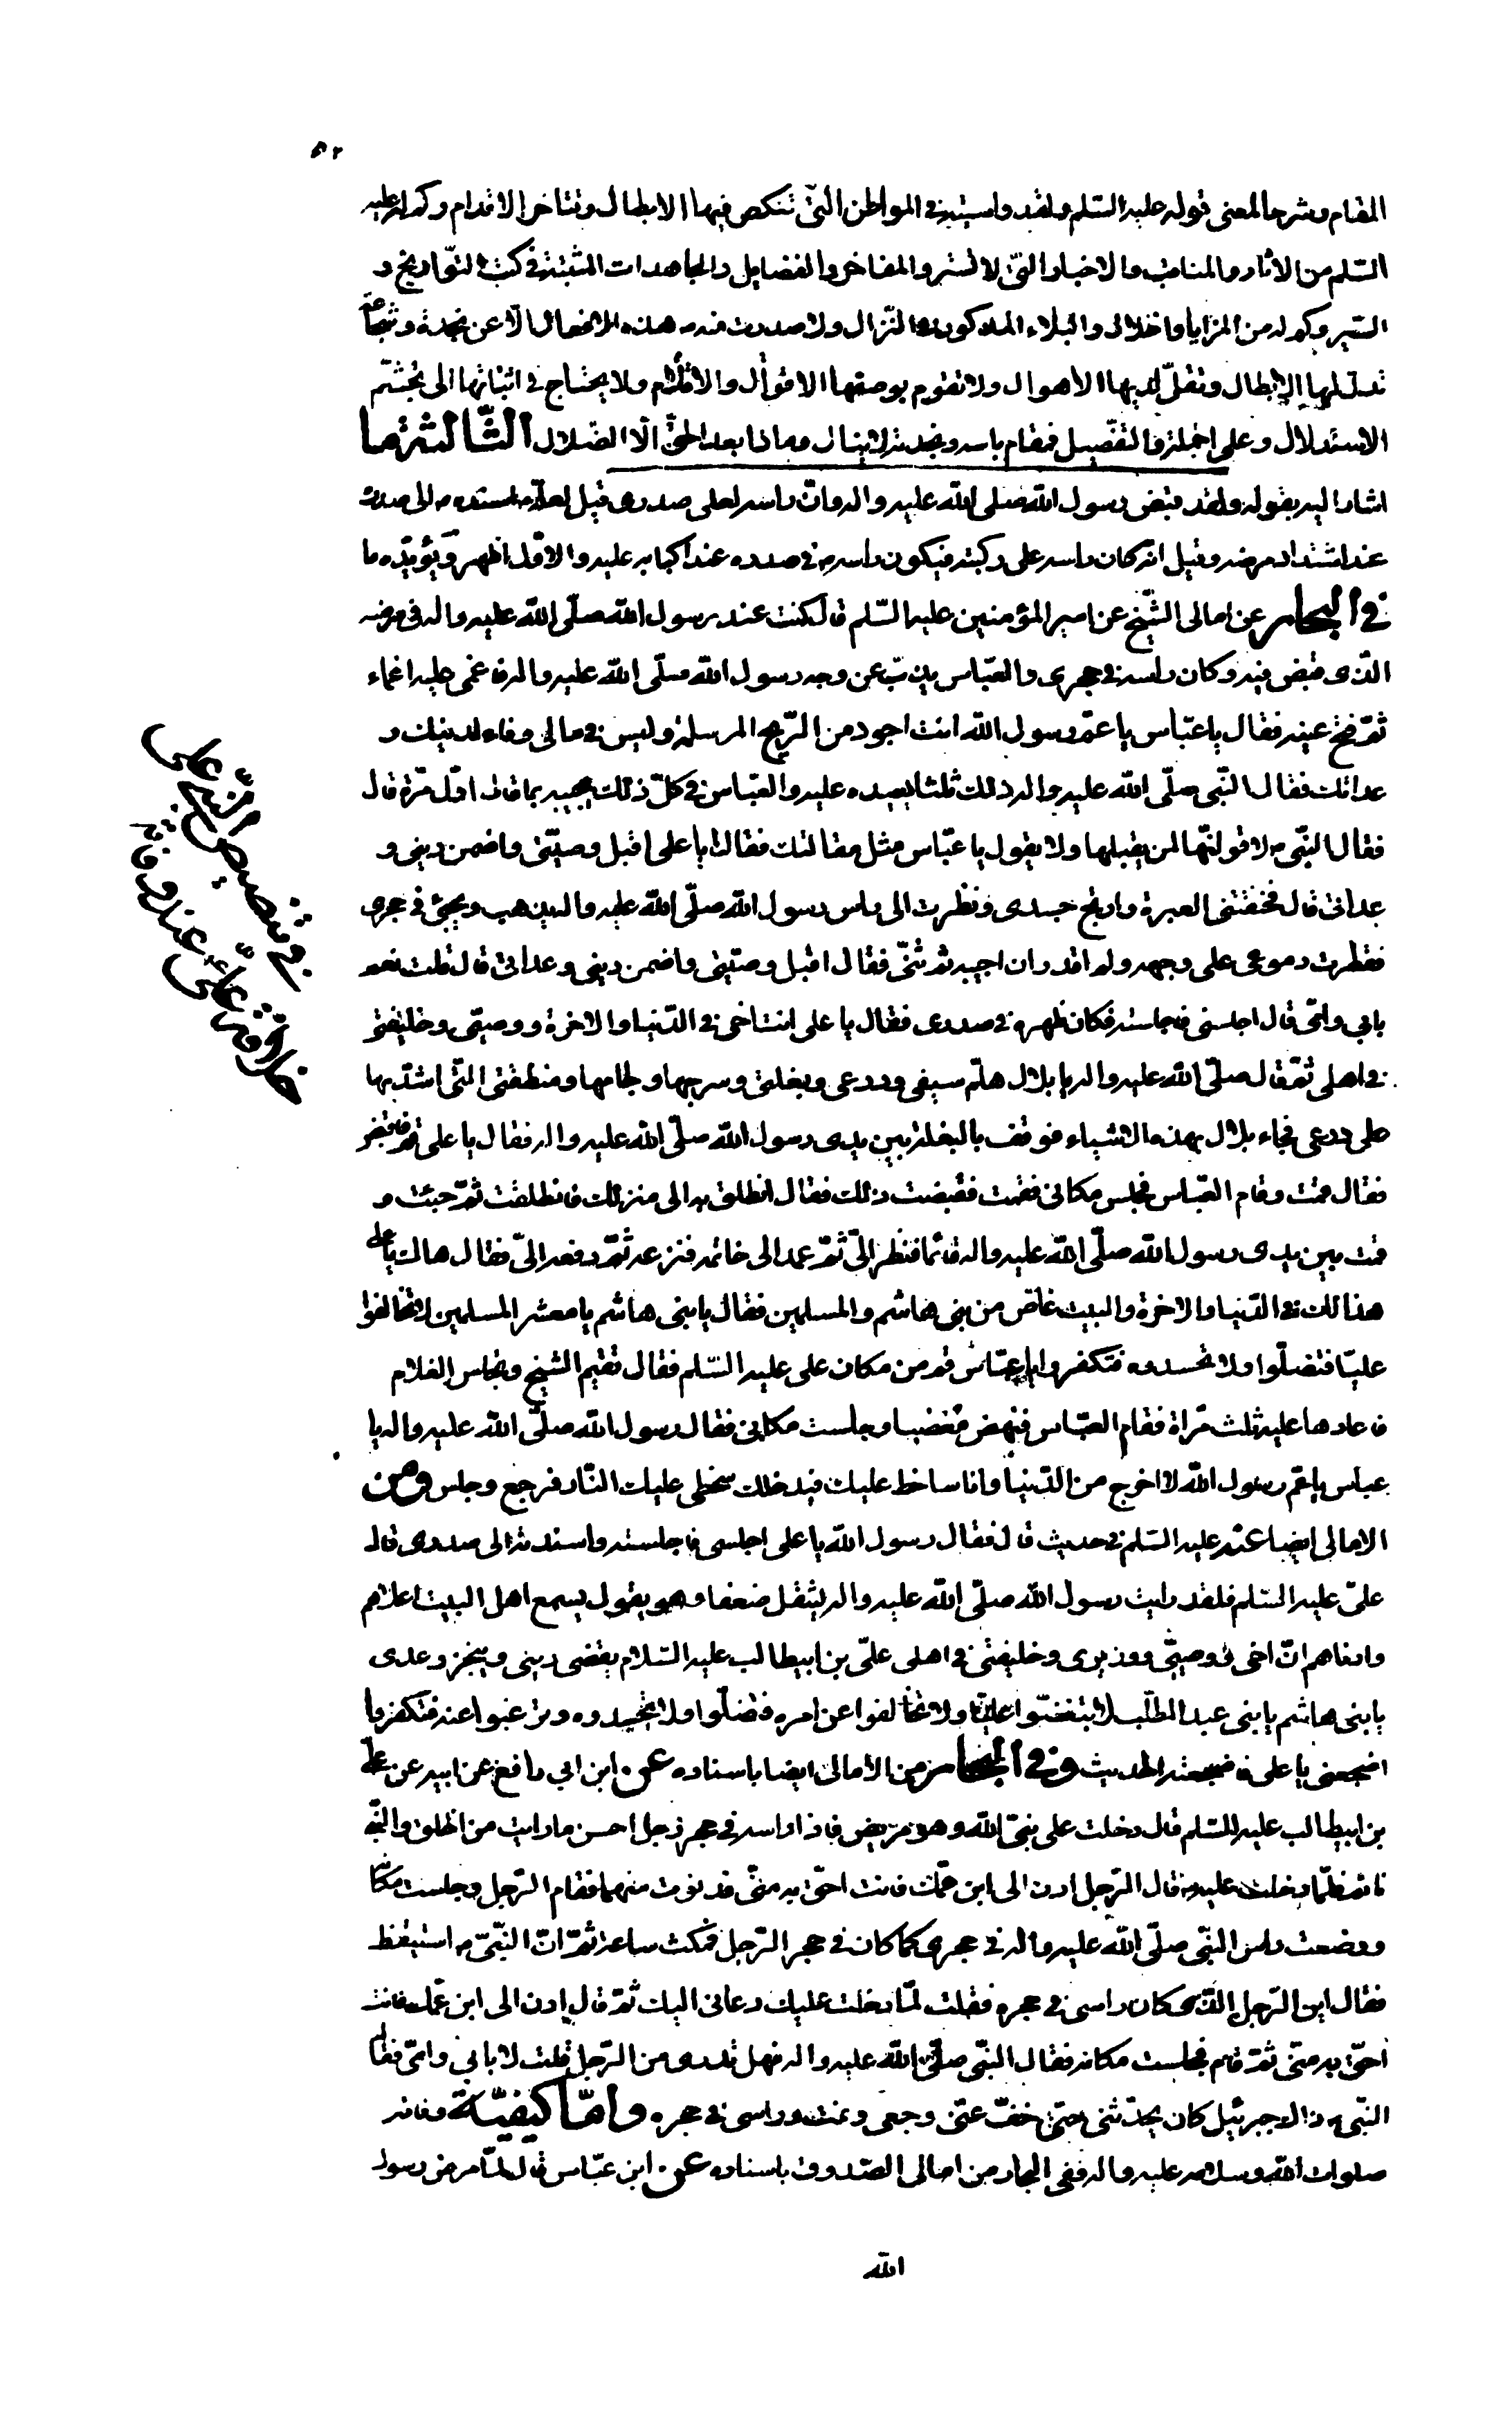 ٥٢
المقام وشرحا لمعنى قوله عليه السّلم ولقد واسيته في المواطن الّتي تنكص فيها الابطال وتتاخر الاقدام وكم له عليه
السّلم من الاثار والمناقب والاخبار الّتي لا تستر والمفاخر والفضايل والمجاهدات المثبتة في كتب التّواريخ و
السّير وكم له من المزايا والخلال والبلاء المذكور في النّزال ولا صدرت منه هذه الافعال الّا عن نجدة وشجاعة
تذلّ لها الابطال وتقلّ لديها الأهوال ولا تقوم بوصفها الاقوال والاقلام ولا يحتاج في اثباتها الى تجشّم
الاستدلال وعلى الجملة والتفصيل فمقام باسه ونجدته لا ينال وماذا بعد الحقّ الّا الضّلال الثّالثة ما
اشار اليه بقوله ولقد قبض رسول الله صلى الله عليه واله وانّ راسه لعلى صدرى قيل لعلّه اسنده الى صدره
عند اشتداد مرضه وقيل انّه كان راسه على ركبته فيكون راسه في صدره عند اكبابه عليه والاوّل اظهر ويؤيّده ما
في البحار عن امالى الشّيخ عن امير المؤمنين عليه السّلم قال كنت عند رسول الله صلّى الله عليه واله في مرضه
الّذى قبض فيه وكان راسه في حجرى والعبّاس يذبّ عن وجه رسول الله صلّى الله عليه واله فاغمى عليه اغماء
ثمّ فتح عينه فقال يا عبّاس يا عمّ رسول الله اقبل وصيّتى واضمن دينى وعداتى فقال العبّاس يا رسول الله انت اجود من الرّيح المرسلة وليس في مالى وفاء لدينك و
عداتك فقال النّبي صلّى الله عليه واله ذلك ثلثا يعيده عليه والعبّاس في كلّ ذلك يجيبه بما قال اوّل مرّة قال
فقال النّبي لاقولنّها لمن يقبلها ولا يقول يا عبّاس مثل مقالتك فقال يا على اقبل وصيّتى واضمن دينى و
عداتى قال فخنقتنى العبرة وارتجّ جسدى ونظرت الى راس رسول الله صلّى الله عليه واله يذهب ويجيئ في حجرى
فقطرت دموعى على وجهه ولم اقدر ان اجيبه ثم ثنّى فقال اقبل وصيّتى واضمن دينى وعداتى قال قلت نعم
بابي وامّى قال اجلسنى فاجلسته فكان ظهره في صدرى فقال يا على انت اخى في الدّنيا والاخرة ووصيّى وخليفتى
في اهلى ثمّ قال صلّى الله عليه واله يا بلال هلمّ سيفى ودرعى وبغلتى وسرجها ولجامها ومنطقتى الّتى اشدّ بها
على درعى فجاء بلال بهذه الاشياء فوقف بالبغلة بين يدى رسول الله صلّى الله عليه واله فقال يا على قم فاقبض
فقال قمت وقام العبّاس فجلس مكانى فقمت فقبضت ذلك فقال انطلق به الى منزلك فانطلقت ثمّ جئت و
قمت بين يدى رسول الله صلّى الله عليه واله قائما فنظر الىّ ثمّ عمد الى خاتمه فنزعه ثمّ دفعه الىّ فقال هاك يا على
هذا لك في الدّنيا والاخرة والبيت غاصّ من بنى هاشم والمسلمين فقال يا بنى هاشم يا معشر المسلمين لا تخالفوا
عليّا فتضلّوا ولا تحسدوه فتكفروا يا عبّاس قم من مكان على عليه السّلم فقال تقيم الشيخ وتجلس الغلام
فاعادها عليه ثلث مرّاة فقام العبّاس فنهض مغضبا وجلست مكانى فقال رسول الله صلّى الله عليه واله يا
عباس يا عمّ رسول الله لا اخرج من الدّنيا وانا ساخط عليك فيدخلك سخطى عليك النّار فرجع وجلس ومن
الامالى ايضا عنه عليه السّلم في حديث قال فقال رسول الله يا على اجلسنى فاجلسته واسندته الى صدرى قال
علىّ عليه السّلم فلقد رايت رسول الله صلّى الله عليه واله ليثقل ضعفا وهو يقول يسمع اهل البيت اعلاهم
وادناهم انّ اخى ووصيّى ووزيرى وخليفتى في اهلى علىّ بن ابيطالب عليه السّلام يقضى دينى وينجز وعدى
يا بنى هاشم يا بنى عبد المطّلب لا تبغضوا عليّا ولا تخالفوا عن امره فتضلّوا ولا تحسدوه وترغبوا عنه فتكفروا
اضجعنى يا على فاضجعته الحديث وفي البحار من الامالى ايضا باسناده عن ابن ابي رافع عن ابيه عن على
بن ابيطالب عليه السّلم قال دخلت على نبىّ الله وهو مريض فاذا راسه في حجر رجل احسن ما رايت من الخلق والنّبي
نائم فلمّا دخلت عليه قال الرّجل ادن الى ابن عمّك فانت احقّ به منّى فدنوت منهما فقام الرّجل وجلست مكانه
ووضعت راس النّبي صلّى الله عليه واله في حجرى كما كان في حجر الرّجل فمكث ساعة ثمّ انّ النّبيّ استيقظ
فقال اين الرّجل الّذى كان راسى في حجره فقلت لمّا دخلت عليك دعانى اليك ثمّ قال ادن الى ابن عمّك فانت
احقّ به منّى ثمّ قام فجلست مكانه فقال النّبي صلّى الله عليه واله فهل تدرى من الرّجل قلت لا بابي وامّى فقال
النّبي ذاك جبرئيل كان يحدّثنى حتّى خفّ عنّى وجعى ونمت وراسى في حجره وامّا كيفيّة وفاته
صلوات الله وسلامه عليه واله ففى البحار من امالى الصّدوق باسناده عن ابن عبّاس قال لمّا مرض رسول
الله
في تنصيص النّبي على
خلافة علىّ عند وفاته